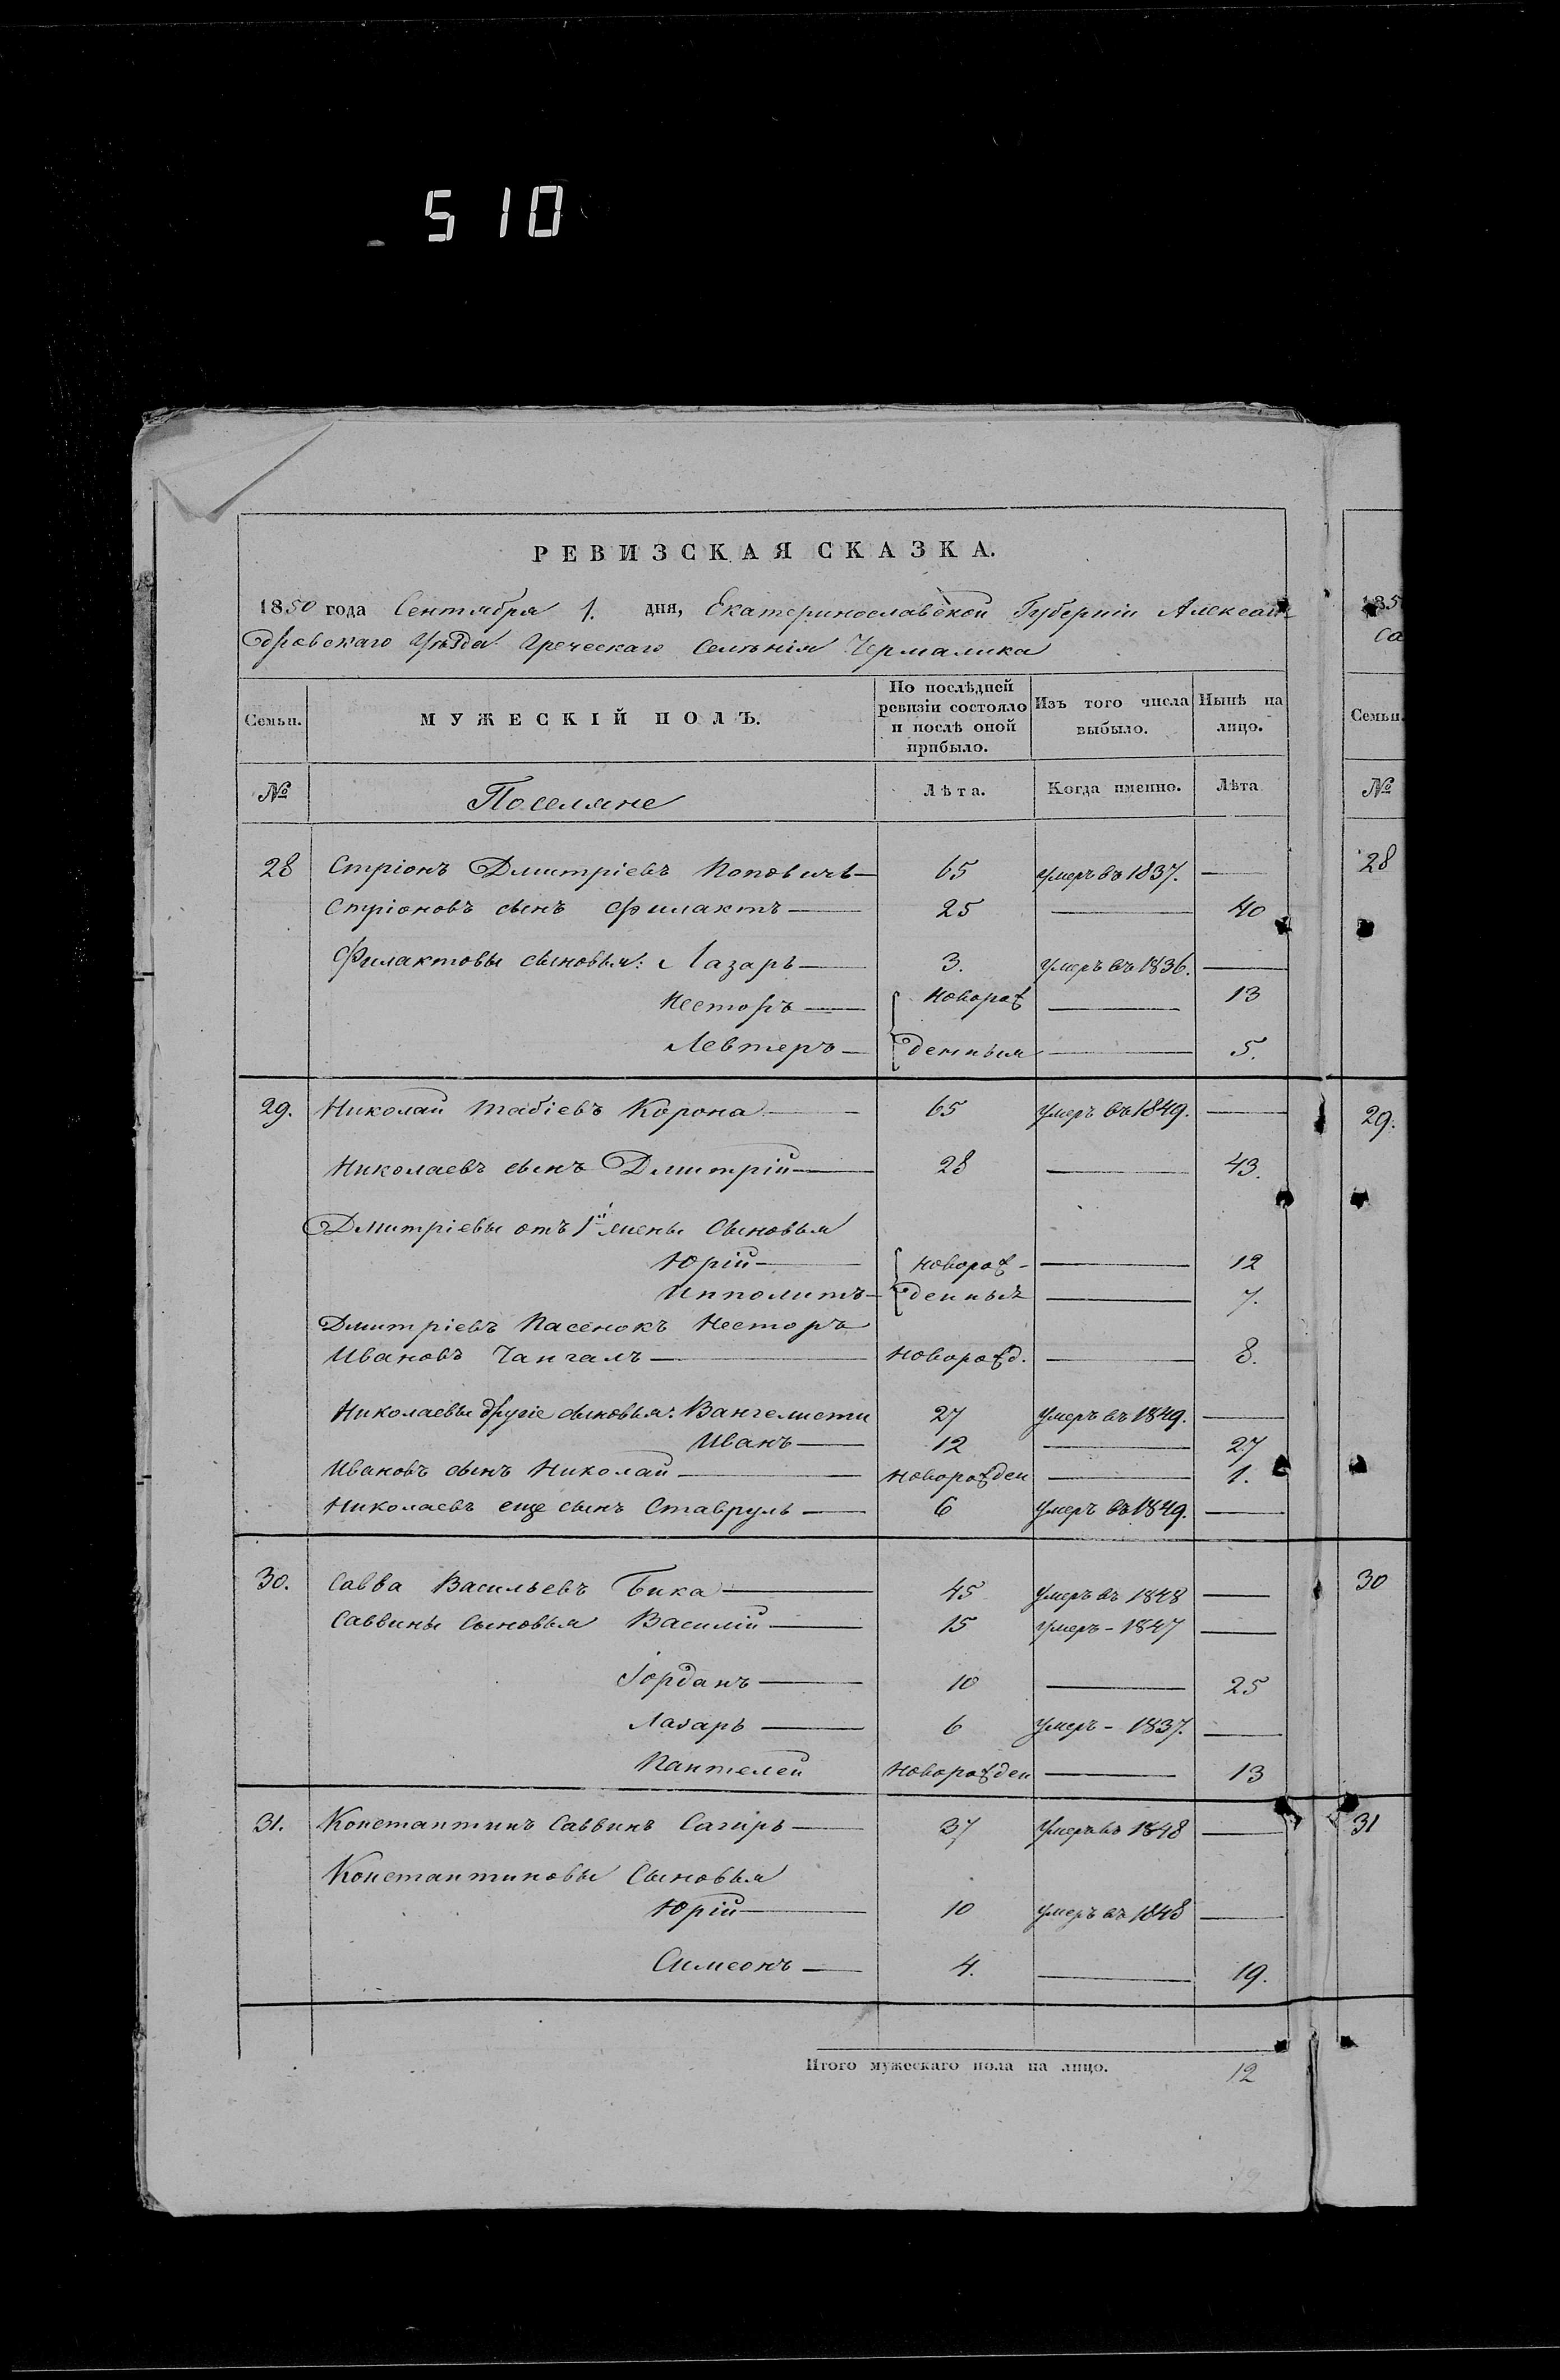 510
РЕВИЗСКАЯ СКАЗКА.
1850 года Сентября 1. дня, Екатеринославской Губерніи Алексан-
дровскаго Уѣзда Греческаго Селѣнія Чермалика
Семьи. МУЖЕСКІЙ ПОЛЪ. По послѣдней ревизіи состояло и послѣ оной прибыло. Изъ того числа выбыло. Нынѣ на лицо.
№ Поселяне Лѣта. Когда именно. Лѣта
28 Стріонъ Дмитріевъ Поповичъ 65 умеръ въ 1837. —
Стріоновъ сынъ Филактъ — 25 — 40
Филактовы сыновья: Лазарь — 3. умеръ въ 1836. —
Несторъ — новорож — 13
Левтеръ — денныя — 5.
29. Николай Табіевъ Корона — 65 умеръ въ 1849. —
Николаевъ сынъ Дмитрій — 28 — 43.
Дмитріевы отъ 1й жены Сыновья
Юрій — новорож- — 12
Ипполитъ — денныхъ — 7.
Дмитріевъ Пасенокъ Несторъ
Ивановъ Чангалъ — новорожд. — 8.
Николаевы другіе сыновья: Вангелисти 27 умеръ въ 1849. —
Иванъ — 12 — 27
Ивановъ сынъ Николай — новорожден — 1.
Николаевъ еще сынъ Ставруль — 6 умеръ въ 1849. —
30. Савва Васильевъ Бика — 45 умеръ въ 1848 —
Саввины Сыновья Василій — 15 умеръ - 1847 —
Іорданъ — 10 — 25
Лазарь — 6 умеръ - 1837. —
Пантелей новорожден — 13
31. Константинъ Саввинъ Сагиръ — 37 умеръ въ 1848 —
Константиновы Сыновья
Юрій — 10 умеръ въ 1848 —
Симеонъ — 4. — 19.
Итого мужескаго пола на лицо. 12
185
са
Семьи.
№
28
29.
30
31